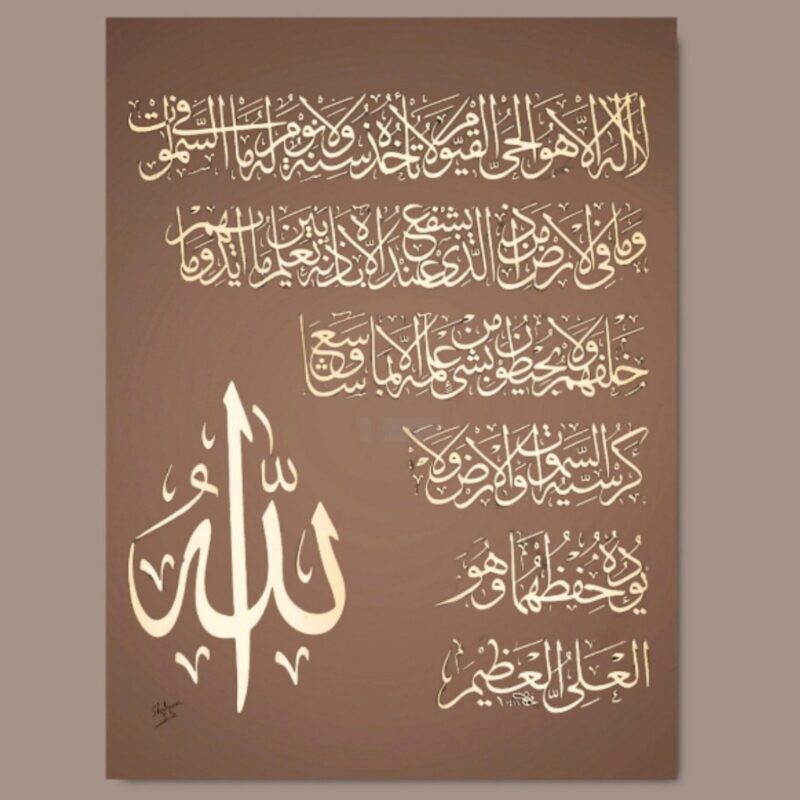 لا اله الا هو الحي القيوم لا تأخذه سنة ولا نوم له ما في السموات
وما في الارض من ذا الذي يشفع عنده الا باذنه يعلم ما بين ايديهم وما
خلفهم ولا يحيطون بشيء من علمه الا بما شاء وسع
كرسيه السموات والارض ولا
يؤده حفظهما وهو
العلي العظيم
الله